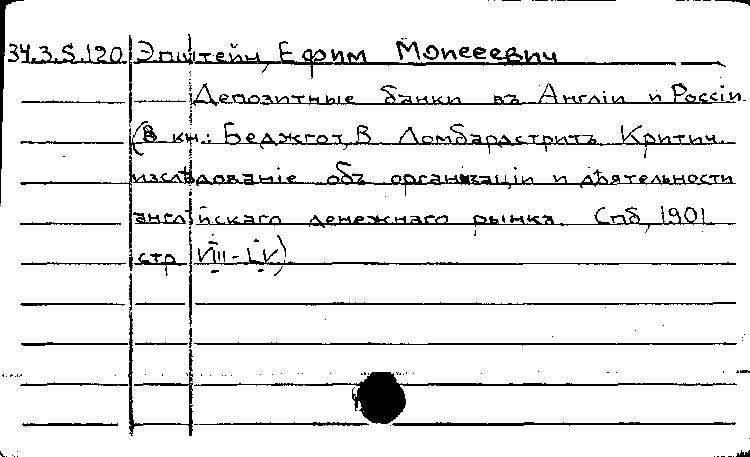 34.3.5.120 Эпштейн, Ефим Моисеевич
Депозитные банки въ Англіи и Россіи
(в кн.: Беджгот, В Ломбардстритъ Критич.
изслѣдованіе объ организаціи и дѣятельности
англійскаго денежнаго рынка. Спб, 1901
стр VIII-LV)